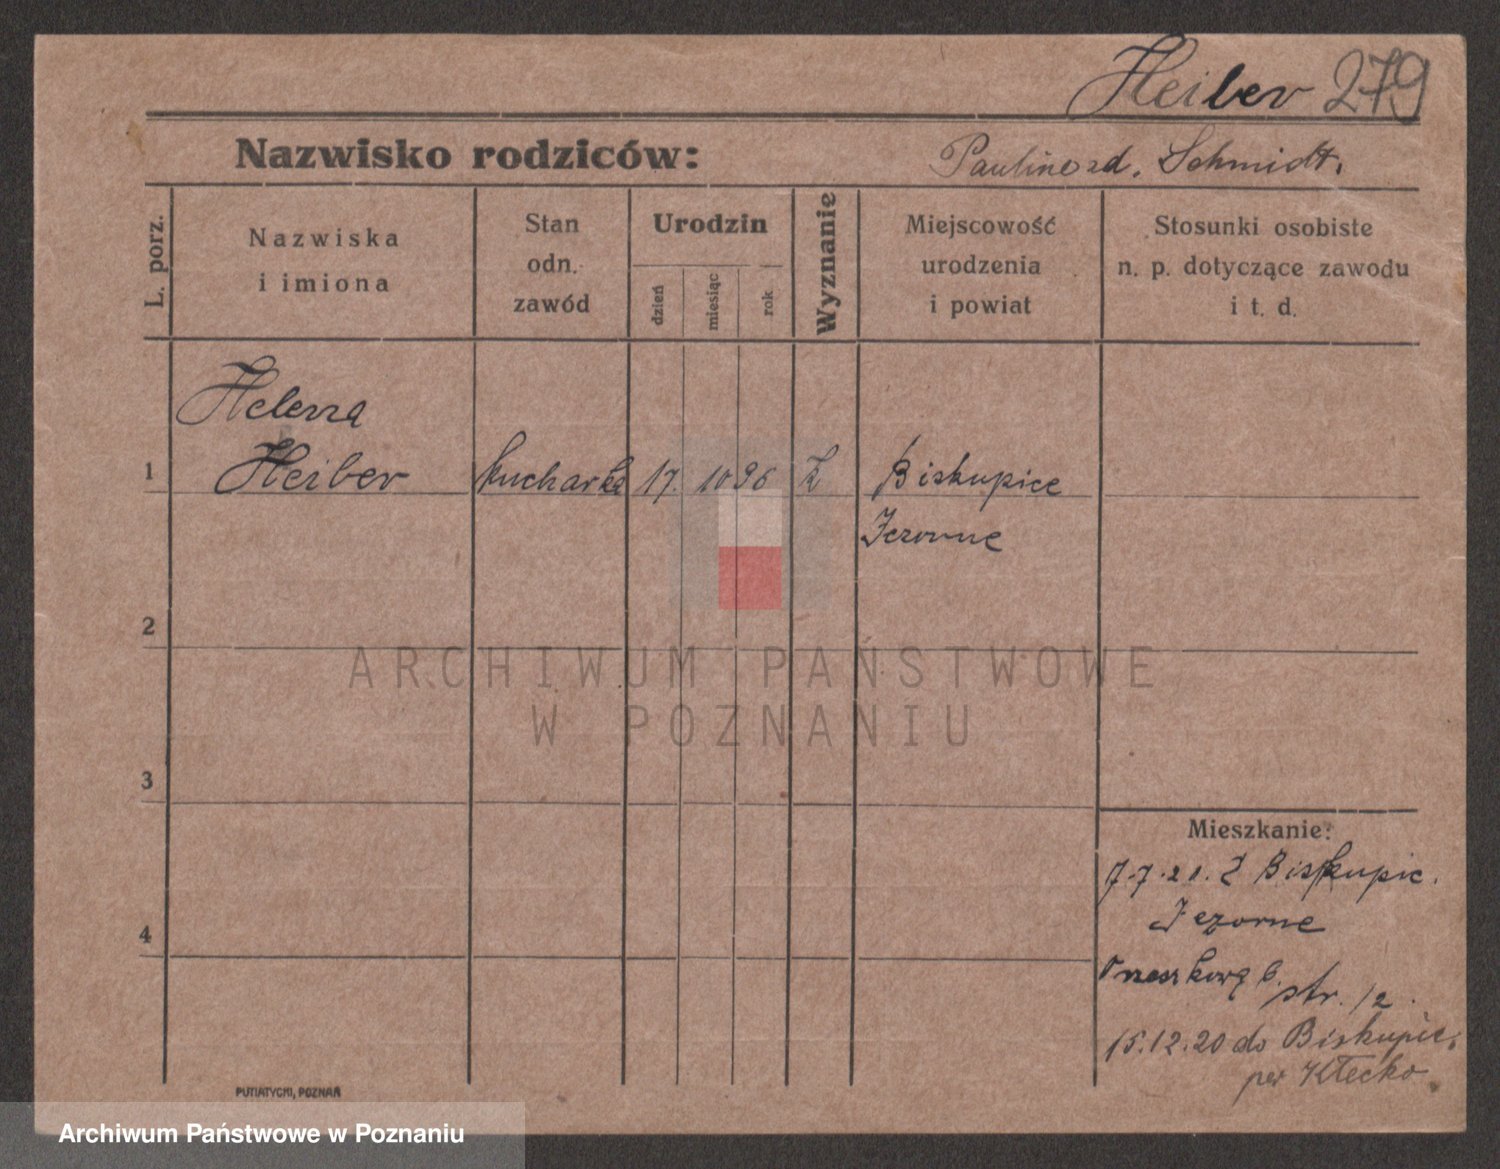 Heiber 279
Nazwisko rodziców: Pauline zd. Schmidt.
L. porz.
Nazwiska
i imiona
Stan
odn.
zawód
Urodzin
dzień
miesiąc
rok
Wyznanie
Miejscowość
urodzenia
i powiat
Stosunki osobiste
n. p. dotyczące zawodu
i t. d.
Helena
1 Heiber kucharka 17. 10 96 Biskupice
Jezorne
2
ARCHIWUM PAŃSTWOWE
W POZNANIU
3
Mieszkanie:
7.7.20. Z Biskupic.
Jezorne
4
str. 12.
15.12.20 do Biskupic.
per Kłecko.
PUTIATYCKI, POZNAŃ
Archiwum Państwowe w Poznaniu